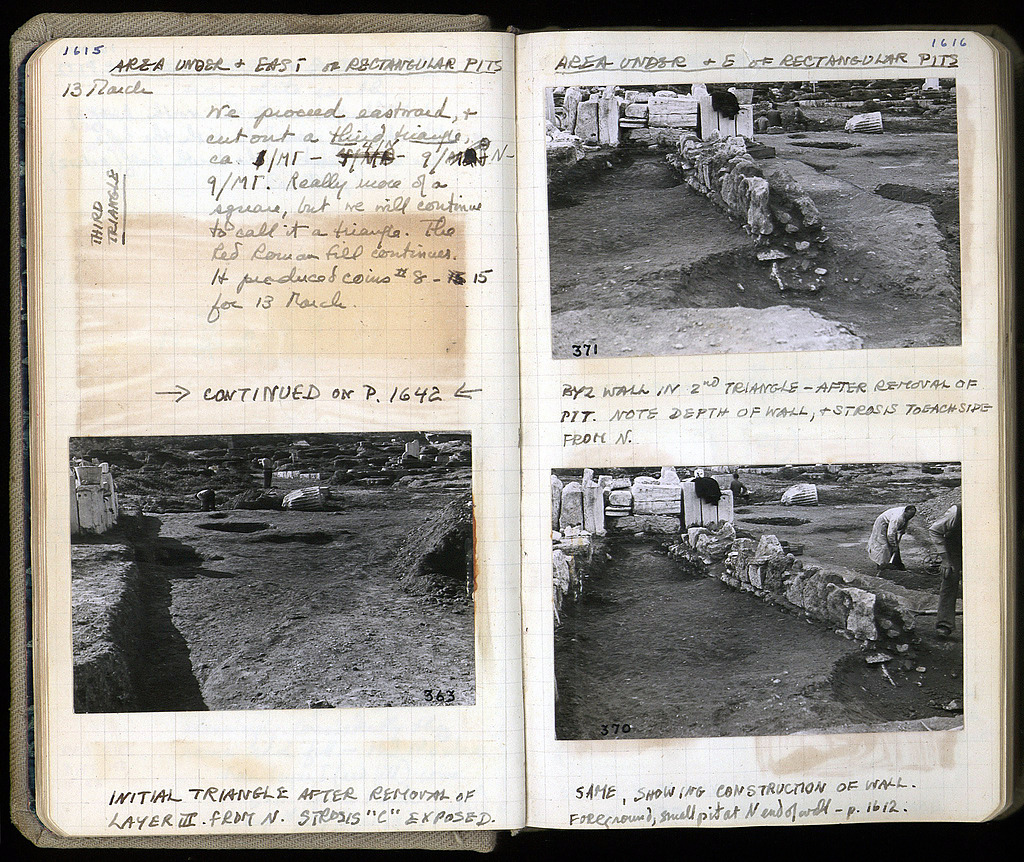 1615
AREA UNDER + EAST OF RECTANGULAR PITS
13 March
We proceed eastward, +
cut out a third triangle,
ca.
9/MΓ. Really more of a
square, but we will continue
to call it a triangle. The
Red Roman fill continues.
It produced coins # 8 - 15
for 13 March.
THIRD
TRIANGLE
→ CONTINUED ON P. 1642 ←
363
INITIAL TRIANGLE AFTER REMOVAL OF
LAYER III. FROM N. STROSIS "C" EXPOSED.
1616
AREA UNDER + E OF RECTANGULAR PITS
371
BYZ WALL IN 2ND TRIANGLE - AFTER REMOVAL OF
PIT. NOTE DEPTH OF WALL, + STROSIS TO EACH SIDE
FROM N.
370
SAME, SHOWING CONSTRUCTION OF WALL.
Foreground, small pit at N end of wall - p. 1612.